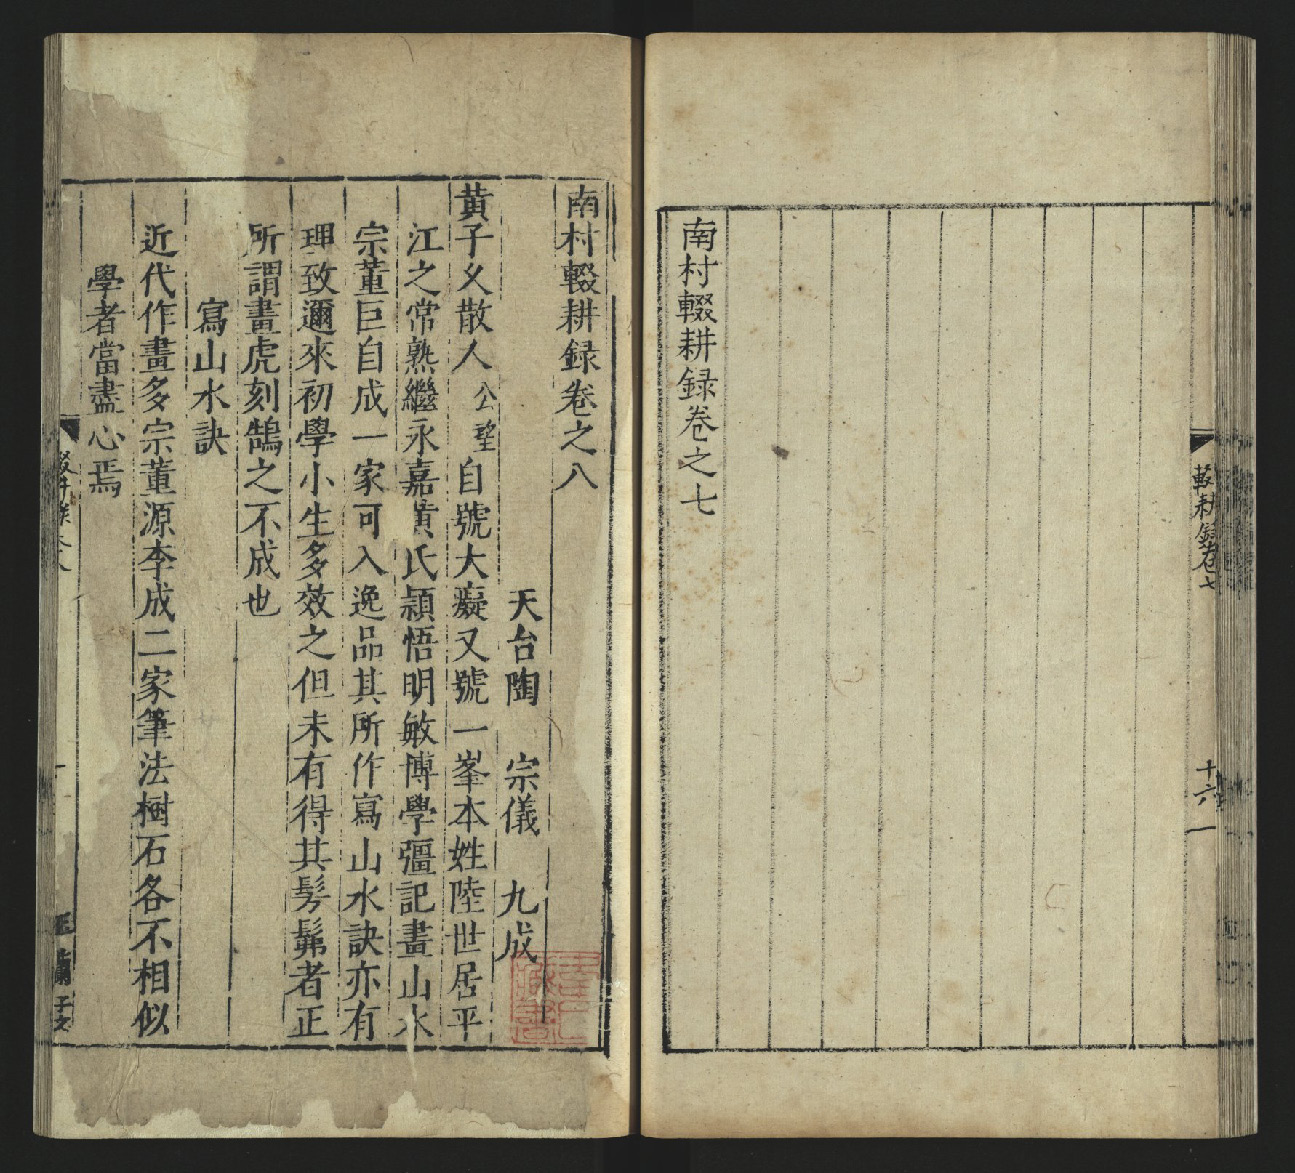 南村輟耕録卷之七
輟耕録卷七
十六
南村輟耕録卷之八
天台陶　宗儀　九成
黃子乂散人公望自號大癡又號一峯本姓陸世居平
江之常熟繼永嘉黃氏頴悟明敏博學彊記畫山水
宗董巨自成一家可入逸品其所作寫山水訣亦有
理致邇來初學小生多效之但未有得其髣髴者正
所謂畫虎刻鵠之不成也
寫山水訣
近代作畫多宗董源李成二家筆法樹石各不相似
學者當盡心焉